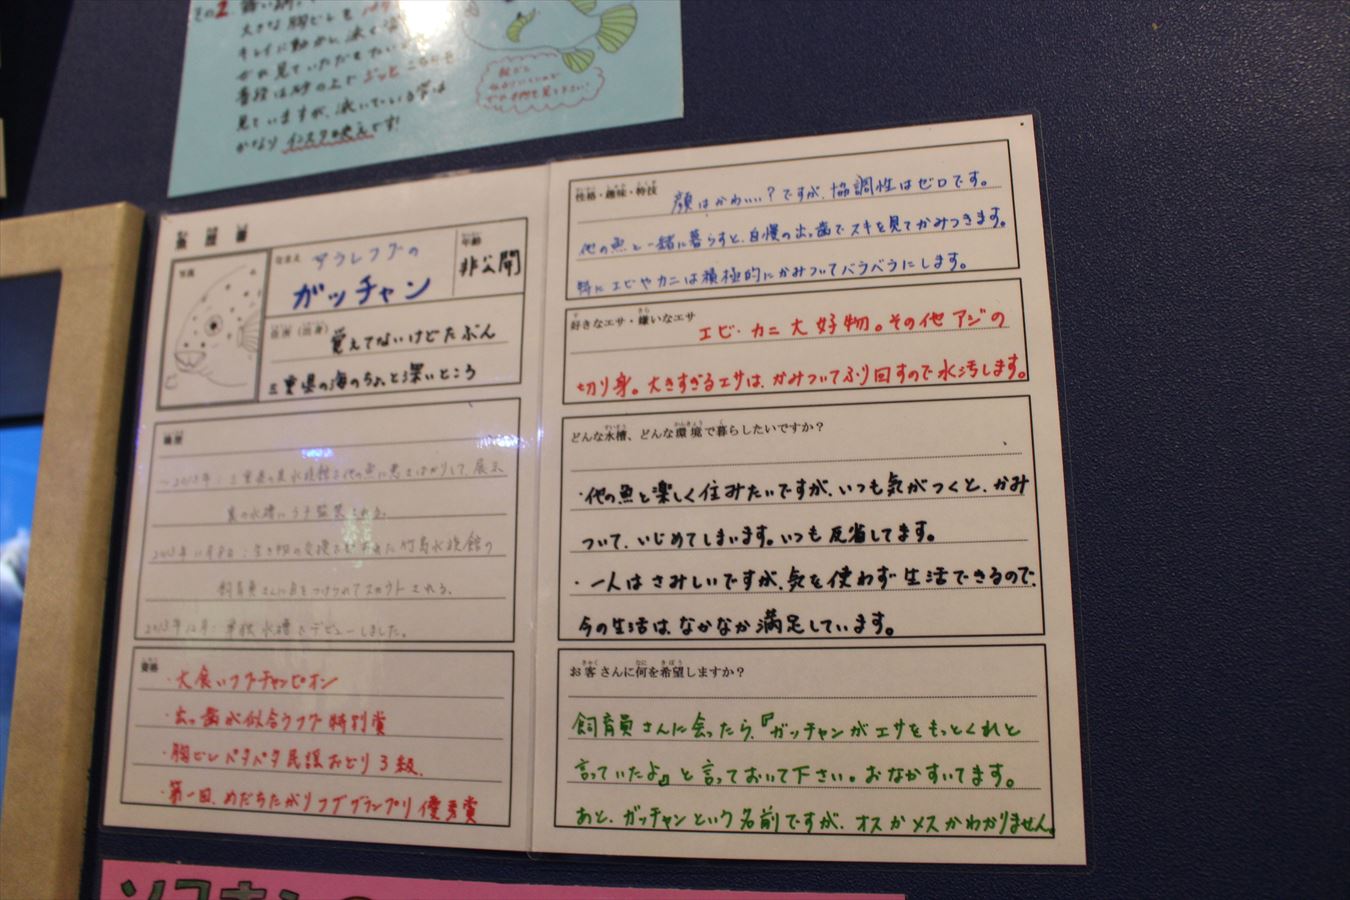 その2.
大きな胸ビレを
見ていますが、泳いでいる姿は
かなりインスタ映えです!
魚歴書
写真
アラレフグの
ガッチャン
年齢
非公開
覚えてないけどたぶん
三重県の海のちょっと深いところ
職歴
~2013年:三重県の某水族館で他の魚に悪さばかりして、展示
裏の水槽に
2013年11月8日:生き物の交換で訪れた竹島水族館の
飼育員さんに目をつけられてスカウトされる。
2013年12月:単独水槽でデビューしました。
資格
・大食いフグチャンピオン
・出っ歯が似合うフグ特別賞
・胸ビレパタパタ民謡おどり3級.
・第一回、めだちたがりフググランプリ優秀賞
性格・趣味・特技
顔はかわいい?ですが、協調性はゼロです。
他の魚と一緒に暮らすと、自慢の出っ歯でスキを見てかみつきます。
特にエビやカニは積極的にかみついてバラバラにします。
好きなエサ・嫌いなエサ
エビ・カニ大好物。その他アジの
切り身。大きすぎるエサは、かみついてふり回すので水汚します。
どんな水槽、どんな環境で暮らしたいですか?
・他の魚と楽しく住みたいですが、いつも気がつくと、かみ
ついて、いじめてしまいます。いつも反省してます。
・一人はさみしいですが、気を使わず生活できるので、
今の生活は、なかなか満足しています。
お客さんに何を希望しますか?
飼育員さんに会ったら、『ガッチャンがエサをもっとくれと
言っていたよ』と言っておいて下さい。おなかすいてます。
あと、ガッチャンという名前ですが、オスかメスかわかりません。